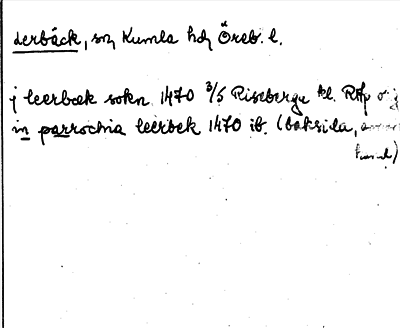 Lerbäck, sn Kumla hd, Öreb. l.
j leerbæk sokn 1470 3/5 Riseberga kl. RAp
in parrochia leerbek 1470 ib. (baksida,
hand)